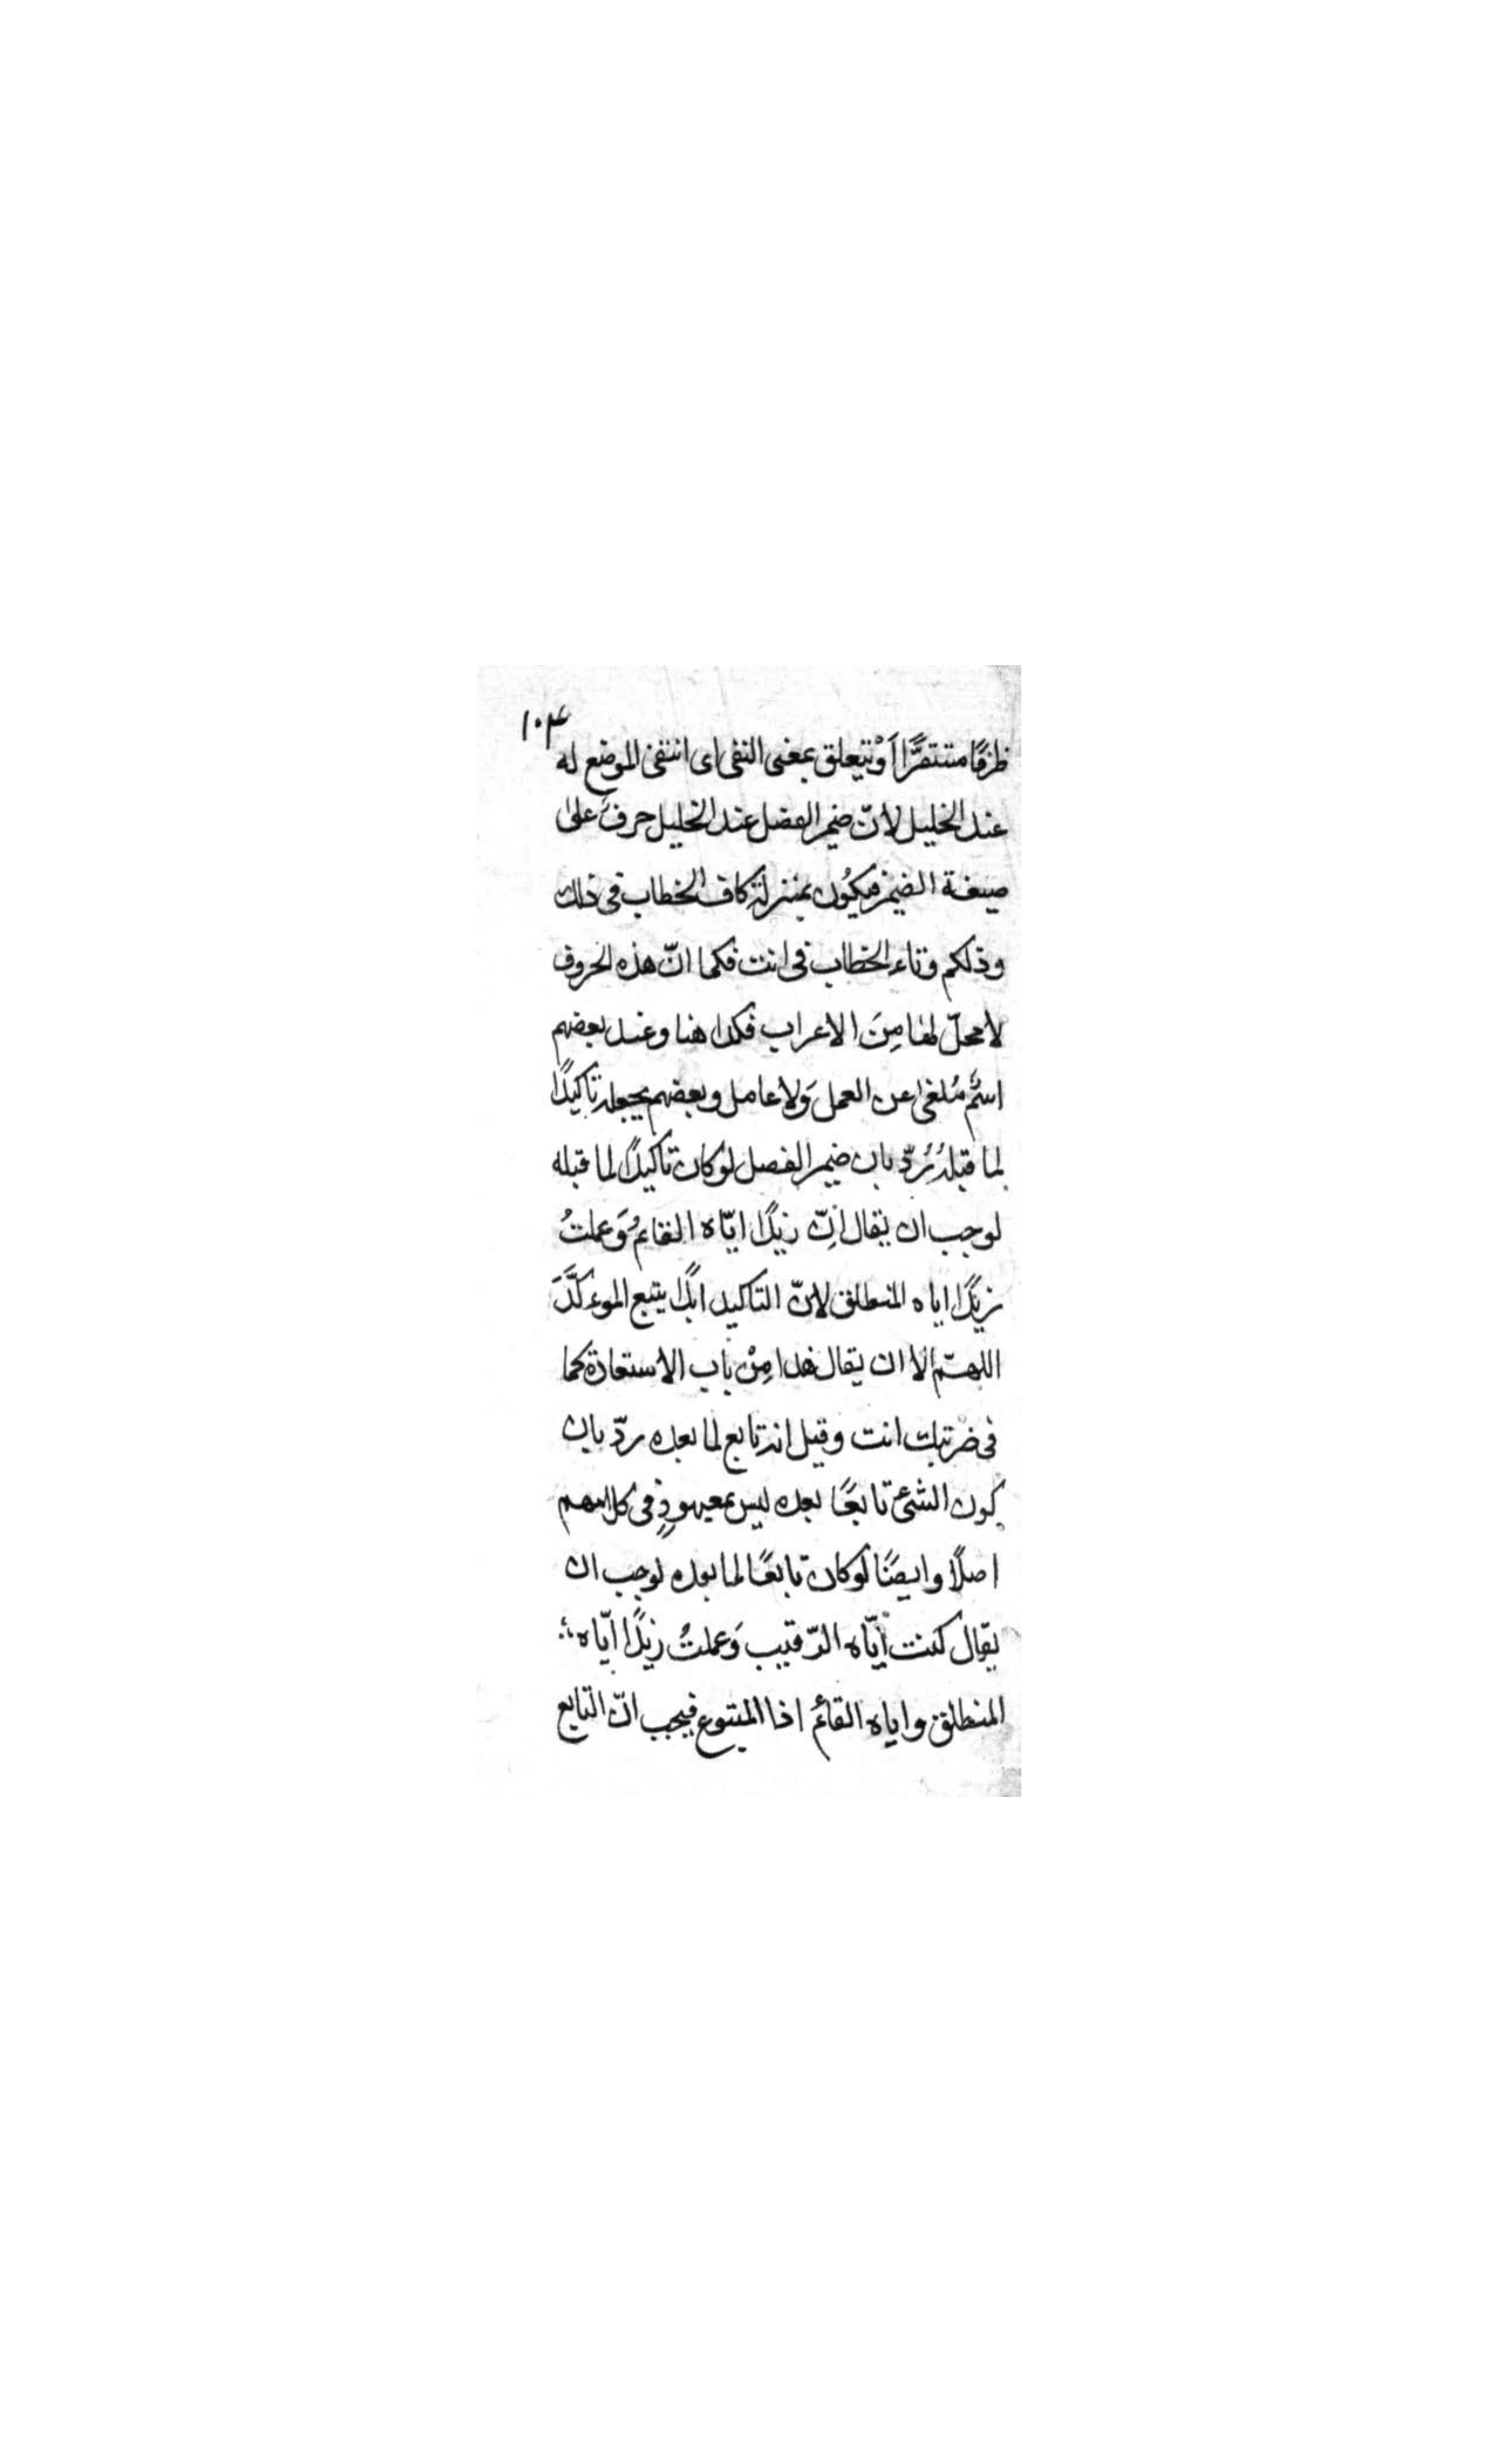 ١٠٣
ظرفًا مستقرًّا اَوْ يتعلق بمعنى النفى اى انتفى الموضع له
عند الخليل لانّ ضمير الفصل عند الخليل حرف على
صيغة الضمير فيكُون بمنزلة كاف الخطاب فى ذلك
وذلكم وتاء الخطاب فى انت فكما انّ هذه الحروف
لا محلّ لها مِنَ الاعراب فكذا هنا وعند بعضهم
اسْمٌ مُلغىٰ عن العمل وَلا عامل وبعضهم يجعله تاكيدًا
لما قبله يُردّ بان ضمير الفصل لوْ كان تاكيدًا لما قبله
لوجب ان يقال انّ زيدًا ايّاه القائمُ وَعلمتُ
زيدًا اياه المنطلق لانّ التاكيد ابدًا يتبع الموءكَّدَ
اللهمّ الا ان يقال هذا مِنْ باب الاستعارة كما
فى ضربتك انت وقيل انه تابع لما بعده ردّ بان
كون الشئ تابعًا بعده ليس بمعهودٍ فى كلامهم
اصلًا وايضًا لَوْ كان تابعًا لما بعده لوجب ان
يقال كنت ايّاه الرّقيب وَعلمتُ زيدًا ايّاه
المنطلق واياه القائم اذا المتبوع فيجب انّ التابع